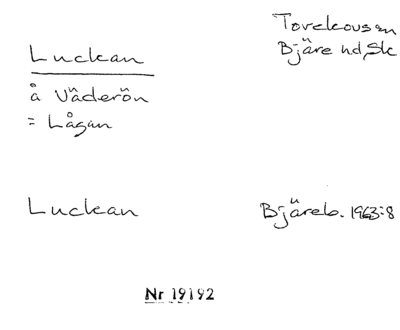 Torekovs sn
Bjäre hd, Sk
Luckan
å Väderön
= Lågan
Luckan
Bjäreb. 1963:8
Nr 19192